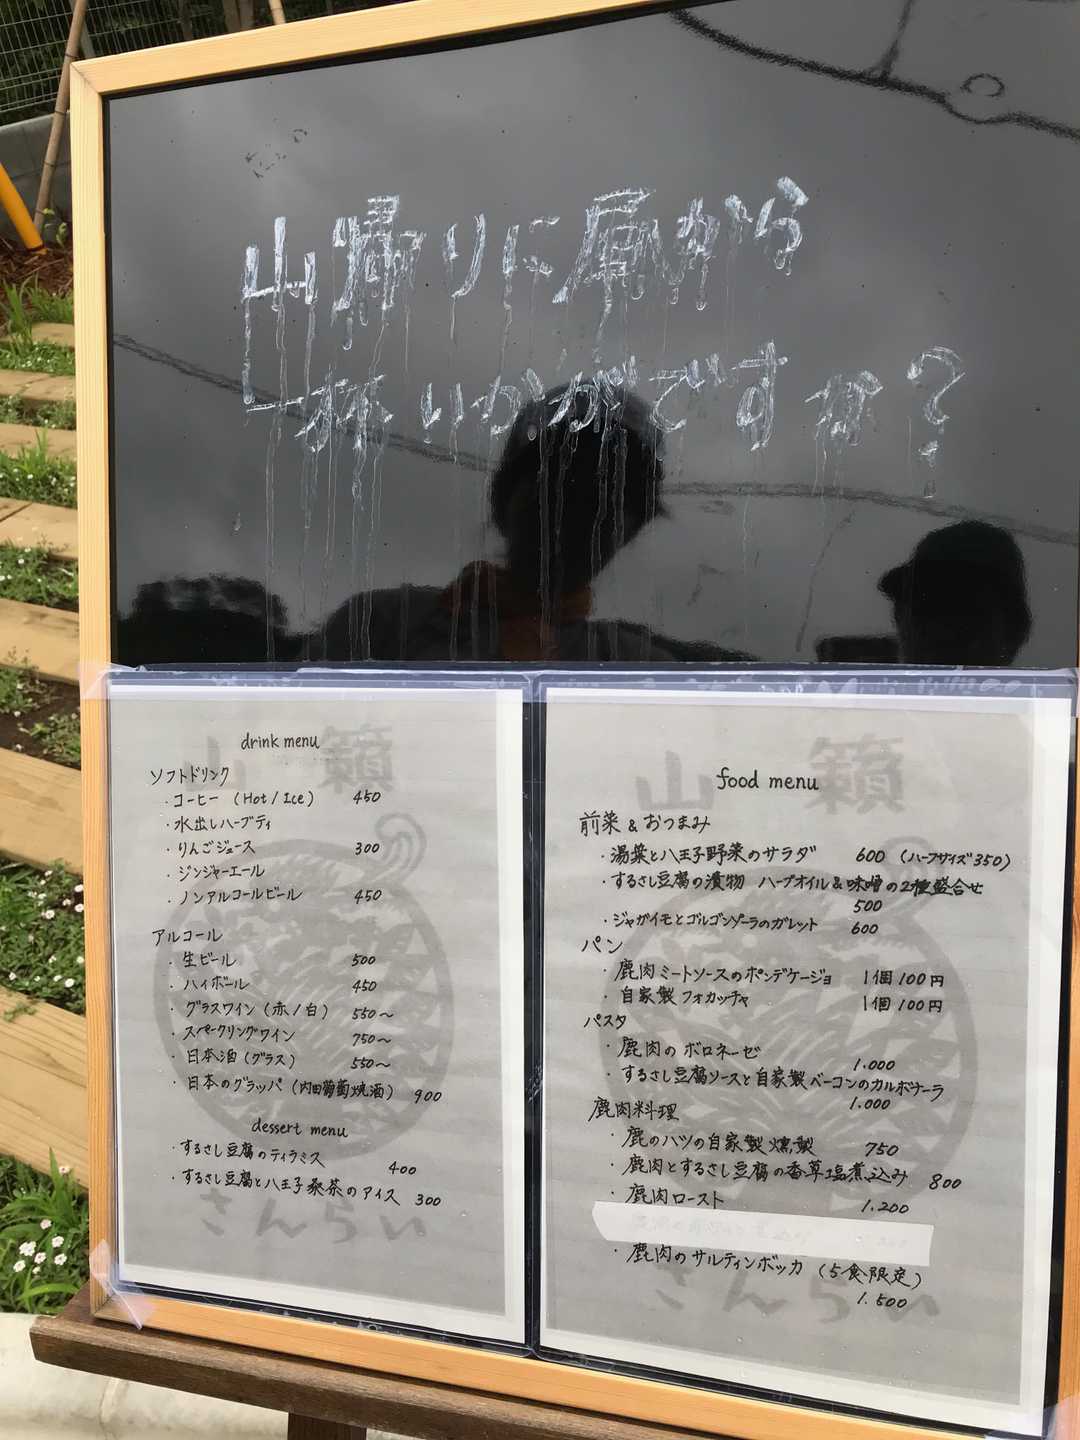 山帰りに昼から
一杯いかがですか?
山籟
drink menu
ソフトドリンク
・コーヒー (Hot/Ice) 450
・水出しハーブティ
・りんごジュース 300
・ジンジャーエール
・ノンアルコールビール 450
アルコール
・生ビール 500
・ハイボール 450
・グラスワイン (赤/白) 550〜
・スパークリングワイン 750〜
・日本酒(グラス) 550〜
・日本のグラッパ (内田葡萄焼酒) 900
dessert menu
・するさし豆腐のティラミス 400
・するさし豆腐と八王子桑茶のアイス 300
さんらい
山籟
food menu
前菜 & おつまみ
・湯葉と八王子野菜のサラダ 600 (ハーフサイズ350)
・するさし豆腐の漬物 ハーブオイル&味噌の2種盛合せ
500
・ジャガイモとゴルゴンゾーラのガレット 600
パン
・鹿肉ミートソースのポンデケージョ 1個100円
・自家製フォカッチャ 1個100円
パスタ
・鹿肉のボロネーゼ 1.000
・するさし豆腐ソースと自家製ベーコンのカルボナーラ
1.000
鹿肉料理
・鹿のハツの自家製燻製 750
・鹿肉とするさし豆腐の香草塩煮込み 800
・鹿肉ロースト 1.200
・鹿肉のサルティンボッカ (5食限定)
1.500
さんらい